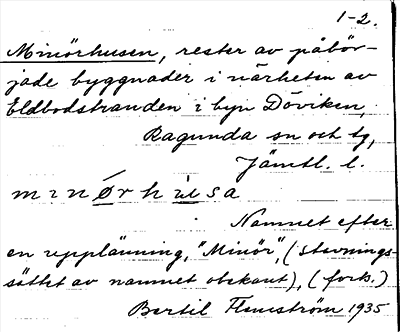 1-2.
Minörhusen, rester av påbör-
jade byggnader i närheten av
Eldbodstranden i byn Döviken,
Ragunda sn och tg,
Jämtl. l.
mɩnørhusa
Namnet efter
en upplänning, "Minör", (stavnings-
sättet av namnet obekant), (forts.)
Bertil Flemström 1935